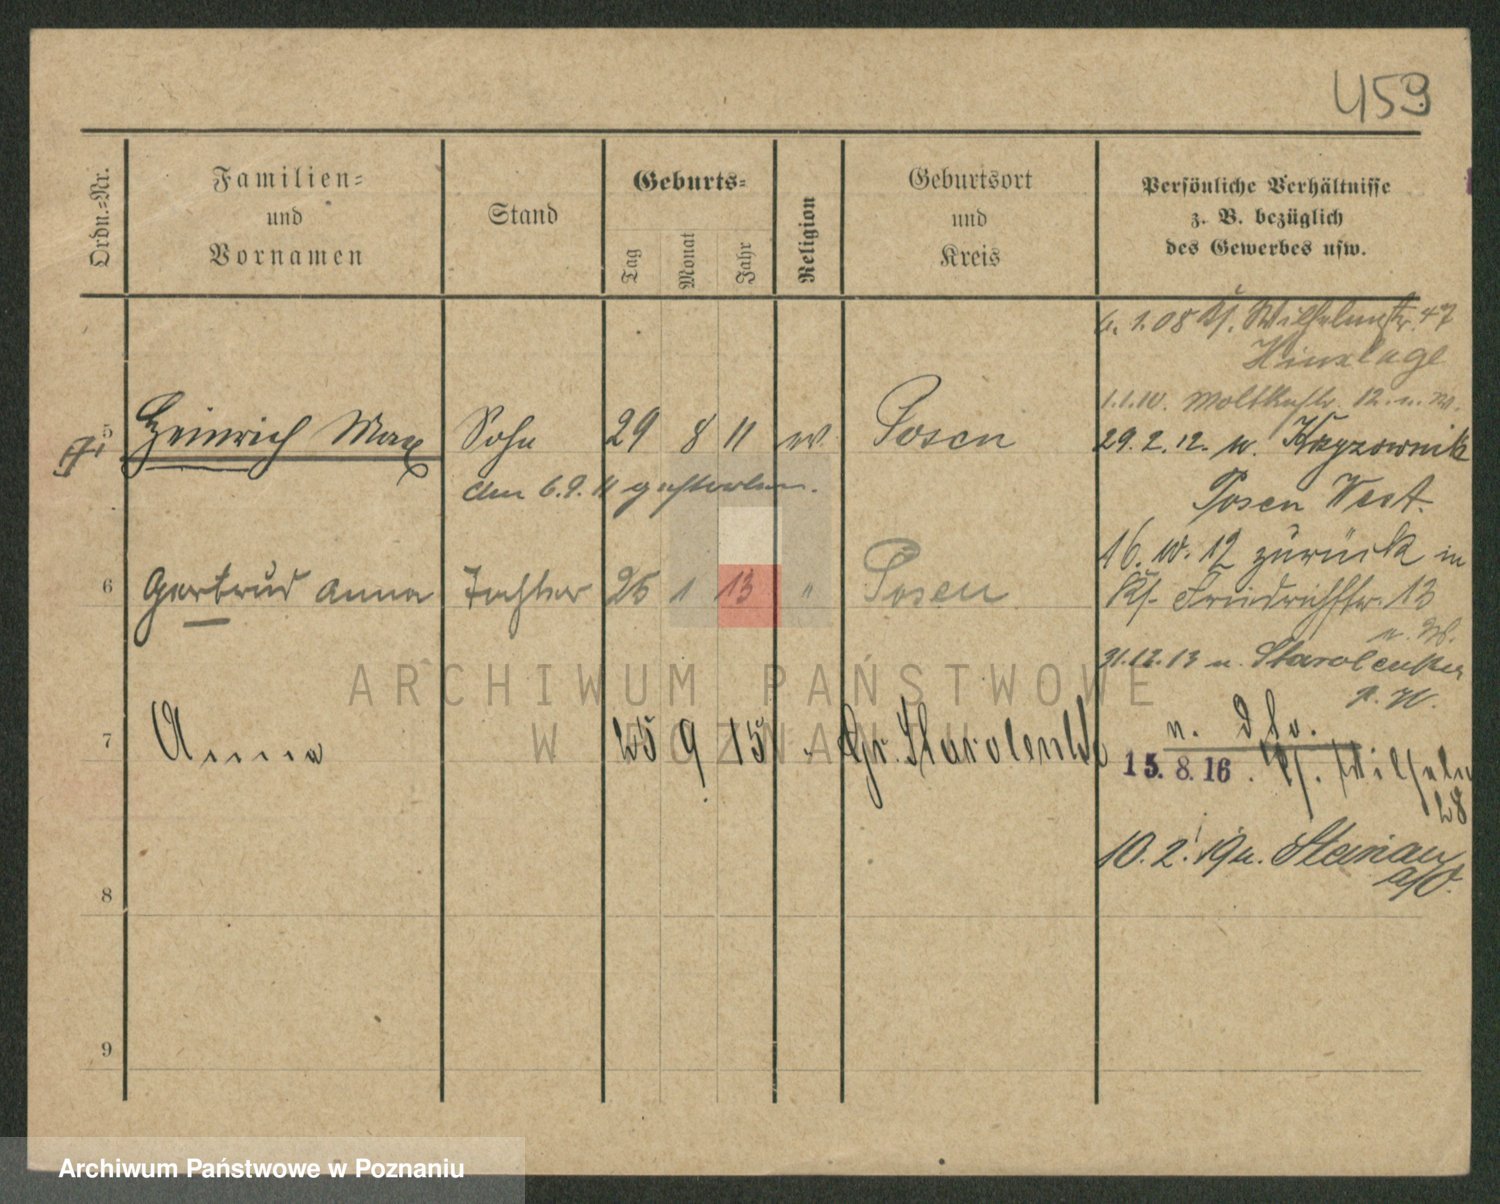 459
Ordn.-Nr.
Familien-
und
Vornamen
Stand
Geburts-
Tag
Monat
Jahr
Religion
Geburtsort
und
Kreis
Persönliche Verhältnisse
z. B. bezüglich
des Gewerbes usw.
6. 1.08 Kf. Wilhelmstr. 47
1.1.10. Moltkestr. 12. n. W.
5 Heinrich Max Sohn 29 8 11 Posen
den 6.9.11 gestorben.
29.2.12. n. Krzyzownik
Posen West.
16.10.12 zurück in
6 Gertrud Anna Tochter 26 1 13 " Posen
Kf. Friedrichstr. 13
31.12.13 n. Starolenka
P. W.
7 Anna 25 9 15 Gr. Starolenka
15.8.16. Kf. Wilhelm
28
10.2.19 n. Steinau
a/O.
8
9
ARCHIWUM PAŃSTWOWE
W POZNANIU
Archiwum Państwowe w Poznaniu